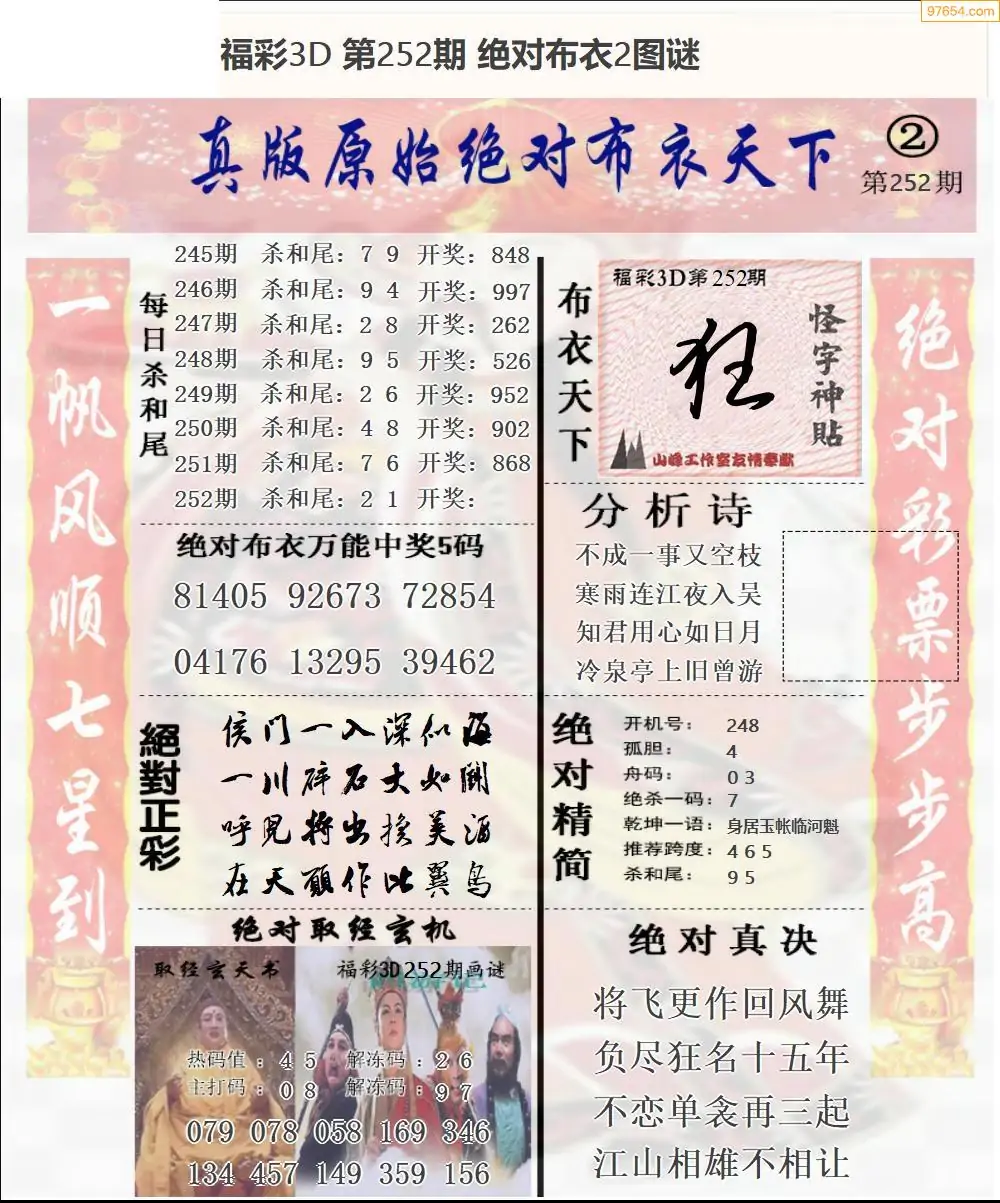 97654.com
福彩3D 第252期 绝对布衣2图谜
真版原始绝对布衣天下
②
第252期
一帆风顺七星到
每日杀和尾
245期 杀和尾：7 9 开奖：848
246期 杀和尾：9 4 开奖：997
247期 杀和尾：2 8 开奖：262
248期 杀和尾：9 5 开奖：526
249期 杀和尾：2 6 开奖：952
250期 杀和尾：4 8 开奖：902
251期 杀和尾：7 6 开奖：868
252期 杀和尾：2 1 开奖：
绝对布衣万能中奖5码
81405 92673 72854
04176 13295 39462
絕對正彩
侯门一入深似海
一川碎石大如斗
呼儿将出换美酒
在天愿作比翼鸟
绝对取经玄机
取经玄天书
福彩3D252期画谜
热码值：4 5 解冻码：2 6
主打码：0 8 解冻码：9 7
079 078 058 169 346
134 457 149 359 156
布衣天下
福彩3D第252期
狂
怪字神贴
山峰工作室友情奉献
分析诗
不成一事又空枝
寒雨连江夜入吴
知君用心如日月
冷泉亭上旧曾游
绝对精简
开机号：248
孤胆：4
舟码：0 3
绝杀一码：7
乾坤一语：身居玉帐临河魁
推荐跨度：4 6 5
杀和尾：9 5
绝对真决
将飞更作回风舞
负尽狂名十五年
不恋单衾再三起
江山相雄不相让
绝对彩票步步高